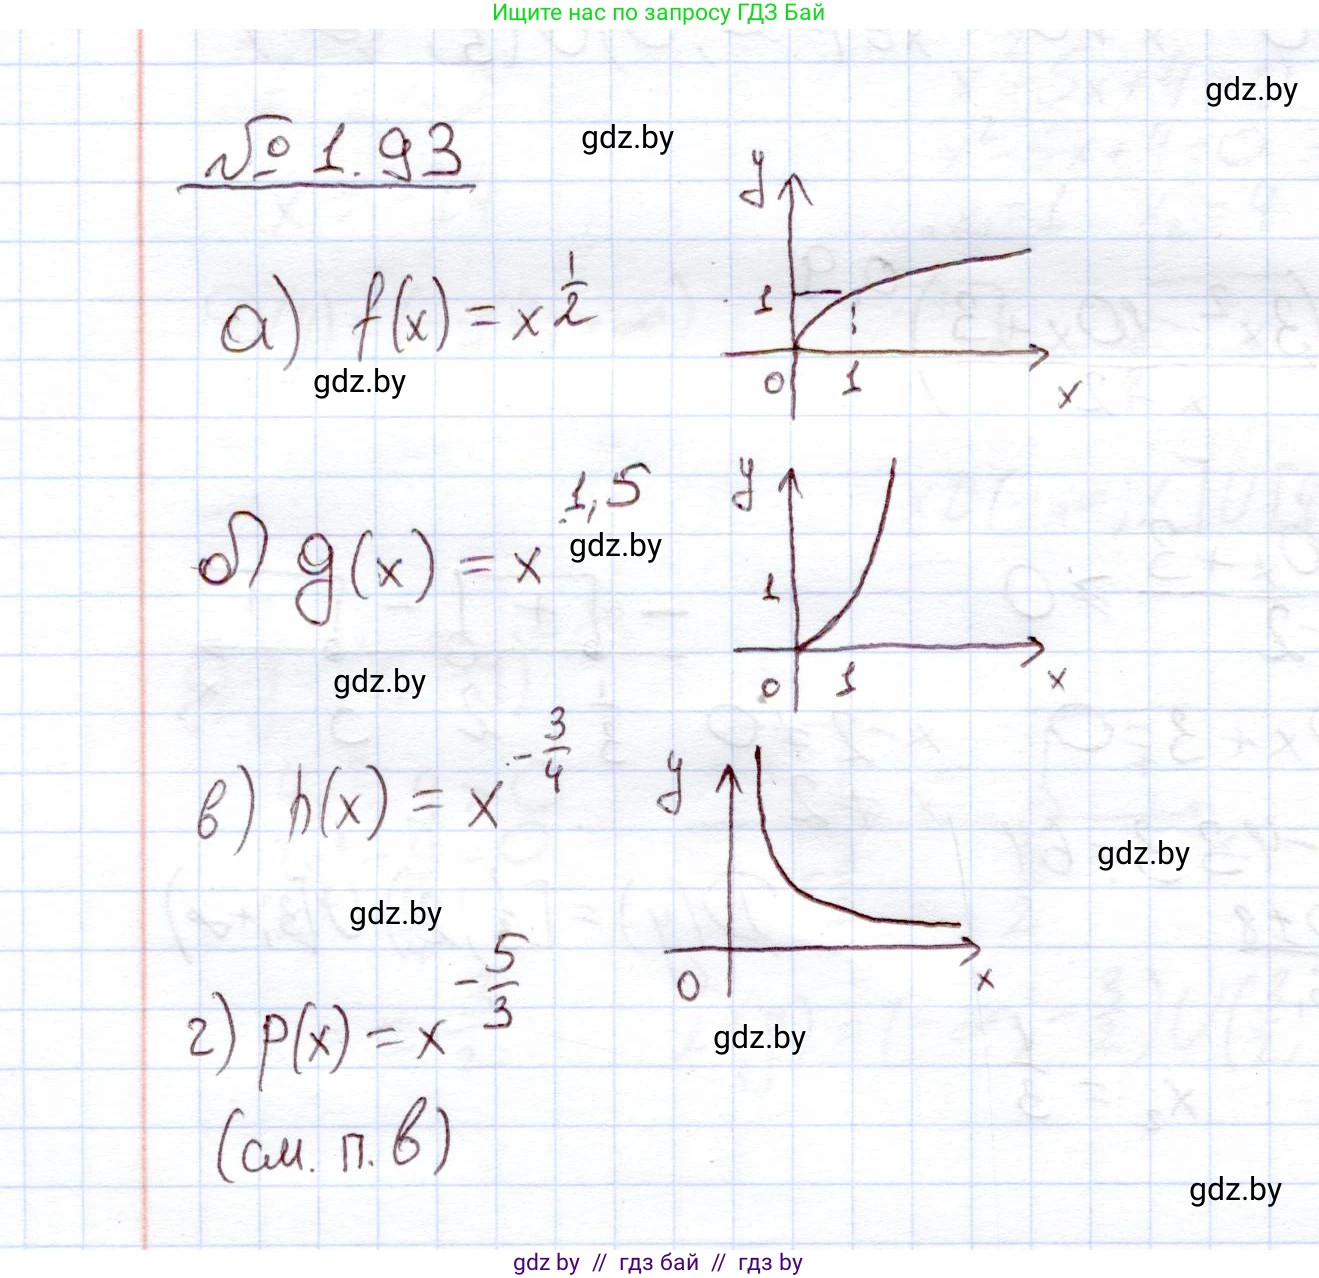 Ищите нас по запросу ГДЗ Бай
gdz.by
№ 1.93
gdz.by
y
1
0 1 x
а) f(x) = x^{\frac{1}{2}}
gdz.by
б) g(x) = x^{1,5}
gdz.by
y
1
0 1 x
gdz.by
в) h(x) = x^{-\frac{3}{4}}
y
0 x
gdz.by
gdz.by
г) p(x) = x^{-\frac{5}{3}}
gdz.by
(см. п. в)
gdz.by
gdz by // гдз бай // гдз by